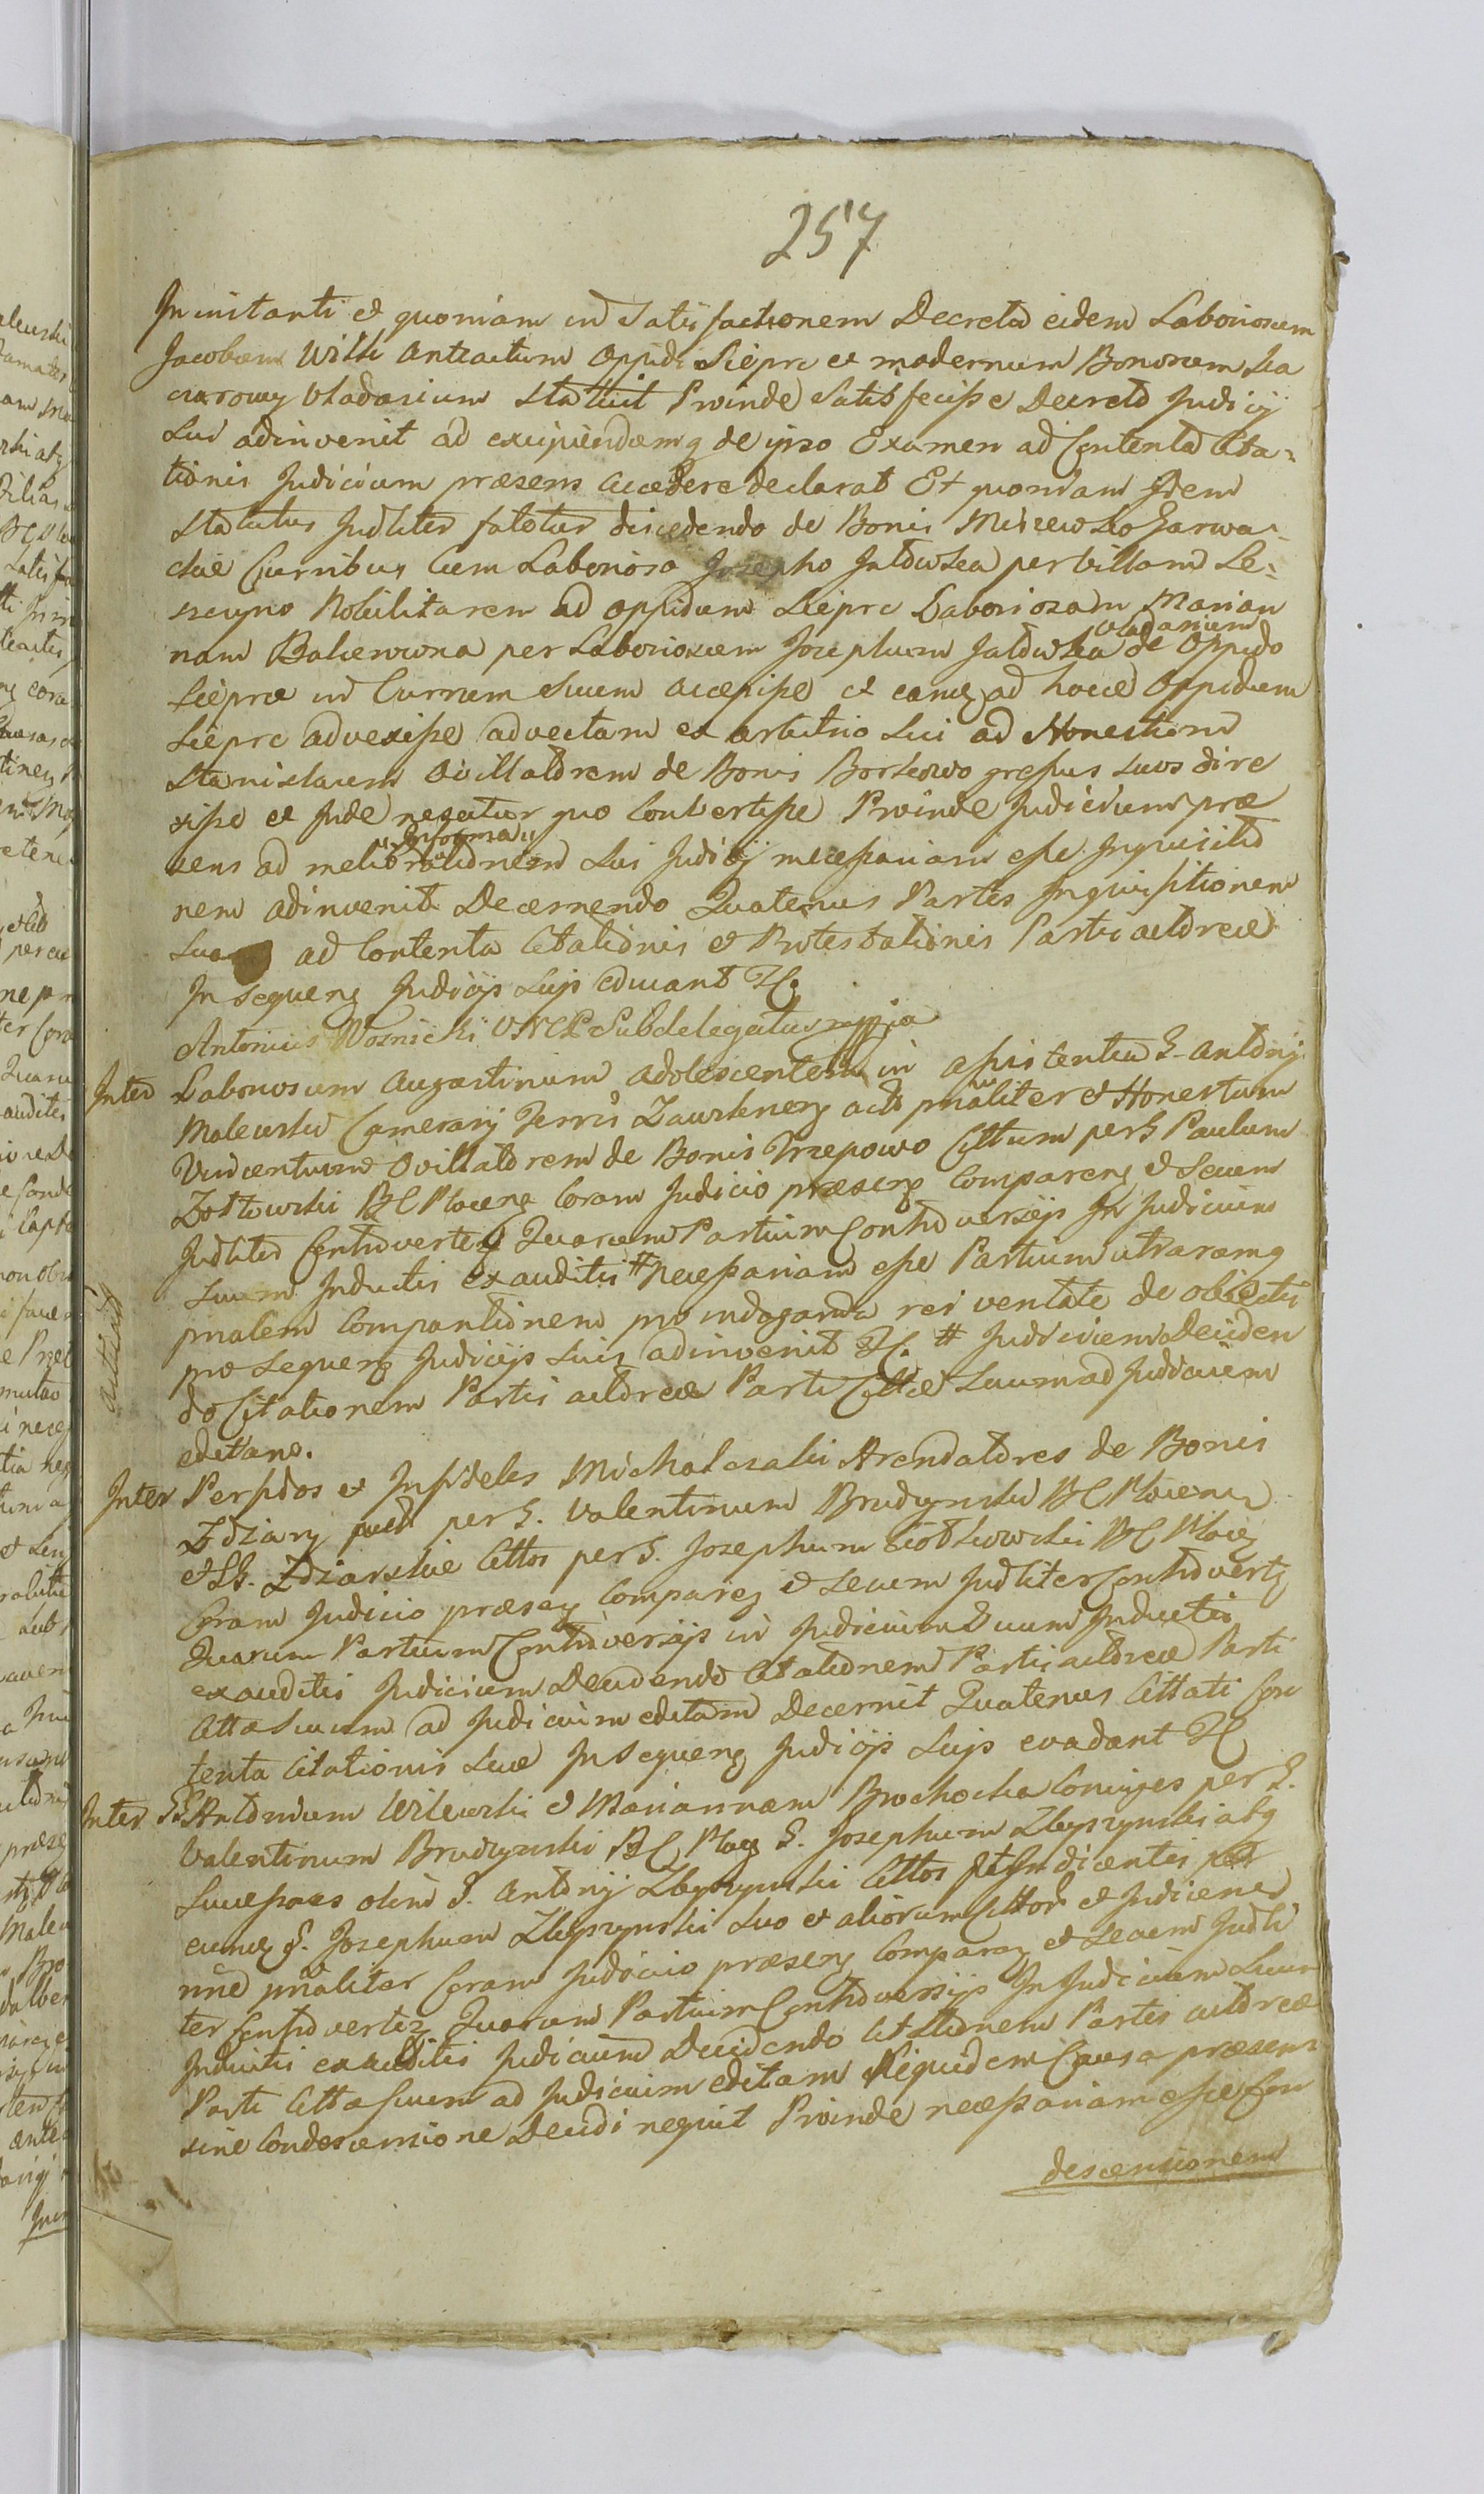 257
In instanti et quoniam in Satisfactionem Decreti eidem Laboriosum
Jacobum Wilk antiactum Oppidi Sieprc et modernum Bonorum
Vladarium Statuit Proinde Satisfecisse Decreto Judicij
Sui adinvenit ad excipiendumq de ipso Examen ad Contenta Cita=
tionis Judicium præsens accedere declarat Et quoniam Idem
Statutus Judliter fatetur discedendo de Bonis
Curribus Cum Laborioso Josepho per Villam Le=
Nobilitarem ad Oppidum Sieprc Laboriosam Marian
nam per Laboriosum Josephum Vladarium de Oppido
Sieprc in Currum Suum accepisse et eamq ad hocce Oppidum
Sieprc advexisse advectam ex arbitrio Sui ad Honestum
Stanislaum Ovillatorem de Bonis Borkowo gressus suos dire
xisse et Inde nescitur quo Convertisse Proinde Judicium præ
sens ad meliorem Informationem Sui Judicij necessariam esse Inquisitio
nem adinvenit Decernendo Quatenus Partes Inquisitionem
Suam ad Contenta Citationis et Protestationis Partis actoreæ
In sequenq Judicijs Sujs educant
Antonius Woznicki VNCP Subdelegatus mppia
Inter Laboriosum Augustinum adolescentem in assistentia G. Antonij
Malewski Camerarij Terris Zawskrnens act pnaliter et Honestum
Vincentium Ovillatorem de Bonis Trzepowo Cittum per G Paulum
Zottowski BC Plocens Coram Judicio præsens Comparens et Secum
Judliter Controvertens Quarum Partium Controversijs In Judicium
Suum Inductis exauditis # necessariam esse Partium utrarumq
pnalem Comparitionem pro indaganda rei veritate de objectis
pro sequens Judicijs Suis adinvenit # Judicium Deciden
do Citationem Partis actoreæ Parti Cittæ Suum ad Judicium
editam.
Inter Perfidos et Infideles Michalczaki Arendatores de Bonis
Zdziary per G. Valentinum Brudzynski BC Plocens
et GG. Zdziarskie Cittos per G. Josephum BC Plocens
Coram Judicio præsens Comparens et Secum Judliter Controvertens
Quarum Partium Controversijs in Judicium Suum Inductis
exauditis Judicium Decidendo Citationem Partis actoreæ Parti
Cittæ Suum ad Judicium editam Decernit Quatenus Cittati Con
tenta Citationis Suæ In sequens Judicijs Sujs evadant
Inter GG Antonium Wilewski et Mariannam Brochocka Conjuges per G.
Valentinum Brudzynski BC Plocens G. Josephum Zbyszynski atq
Successores olim G. Antonij Zbyszynski Cittos
eumq G. Josephum Zbyszynski Suo et aliorum Cittor
nine pnaliter Coram Judicio præsens Comparens et Secum Judli
ter Controvertens Quarum Partium Controversijs In Judicium Suum
Inductis exauditis Judicium Decidendo Citationem Partis actoreæ
Parti Cittæ Suum ad Judicium editam Siquidem Causa præsens
sine Condescensione Decidi nequit Proinde necessariam esse Con
descensionem